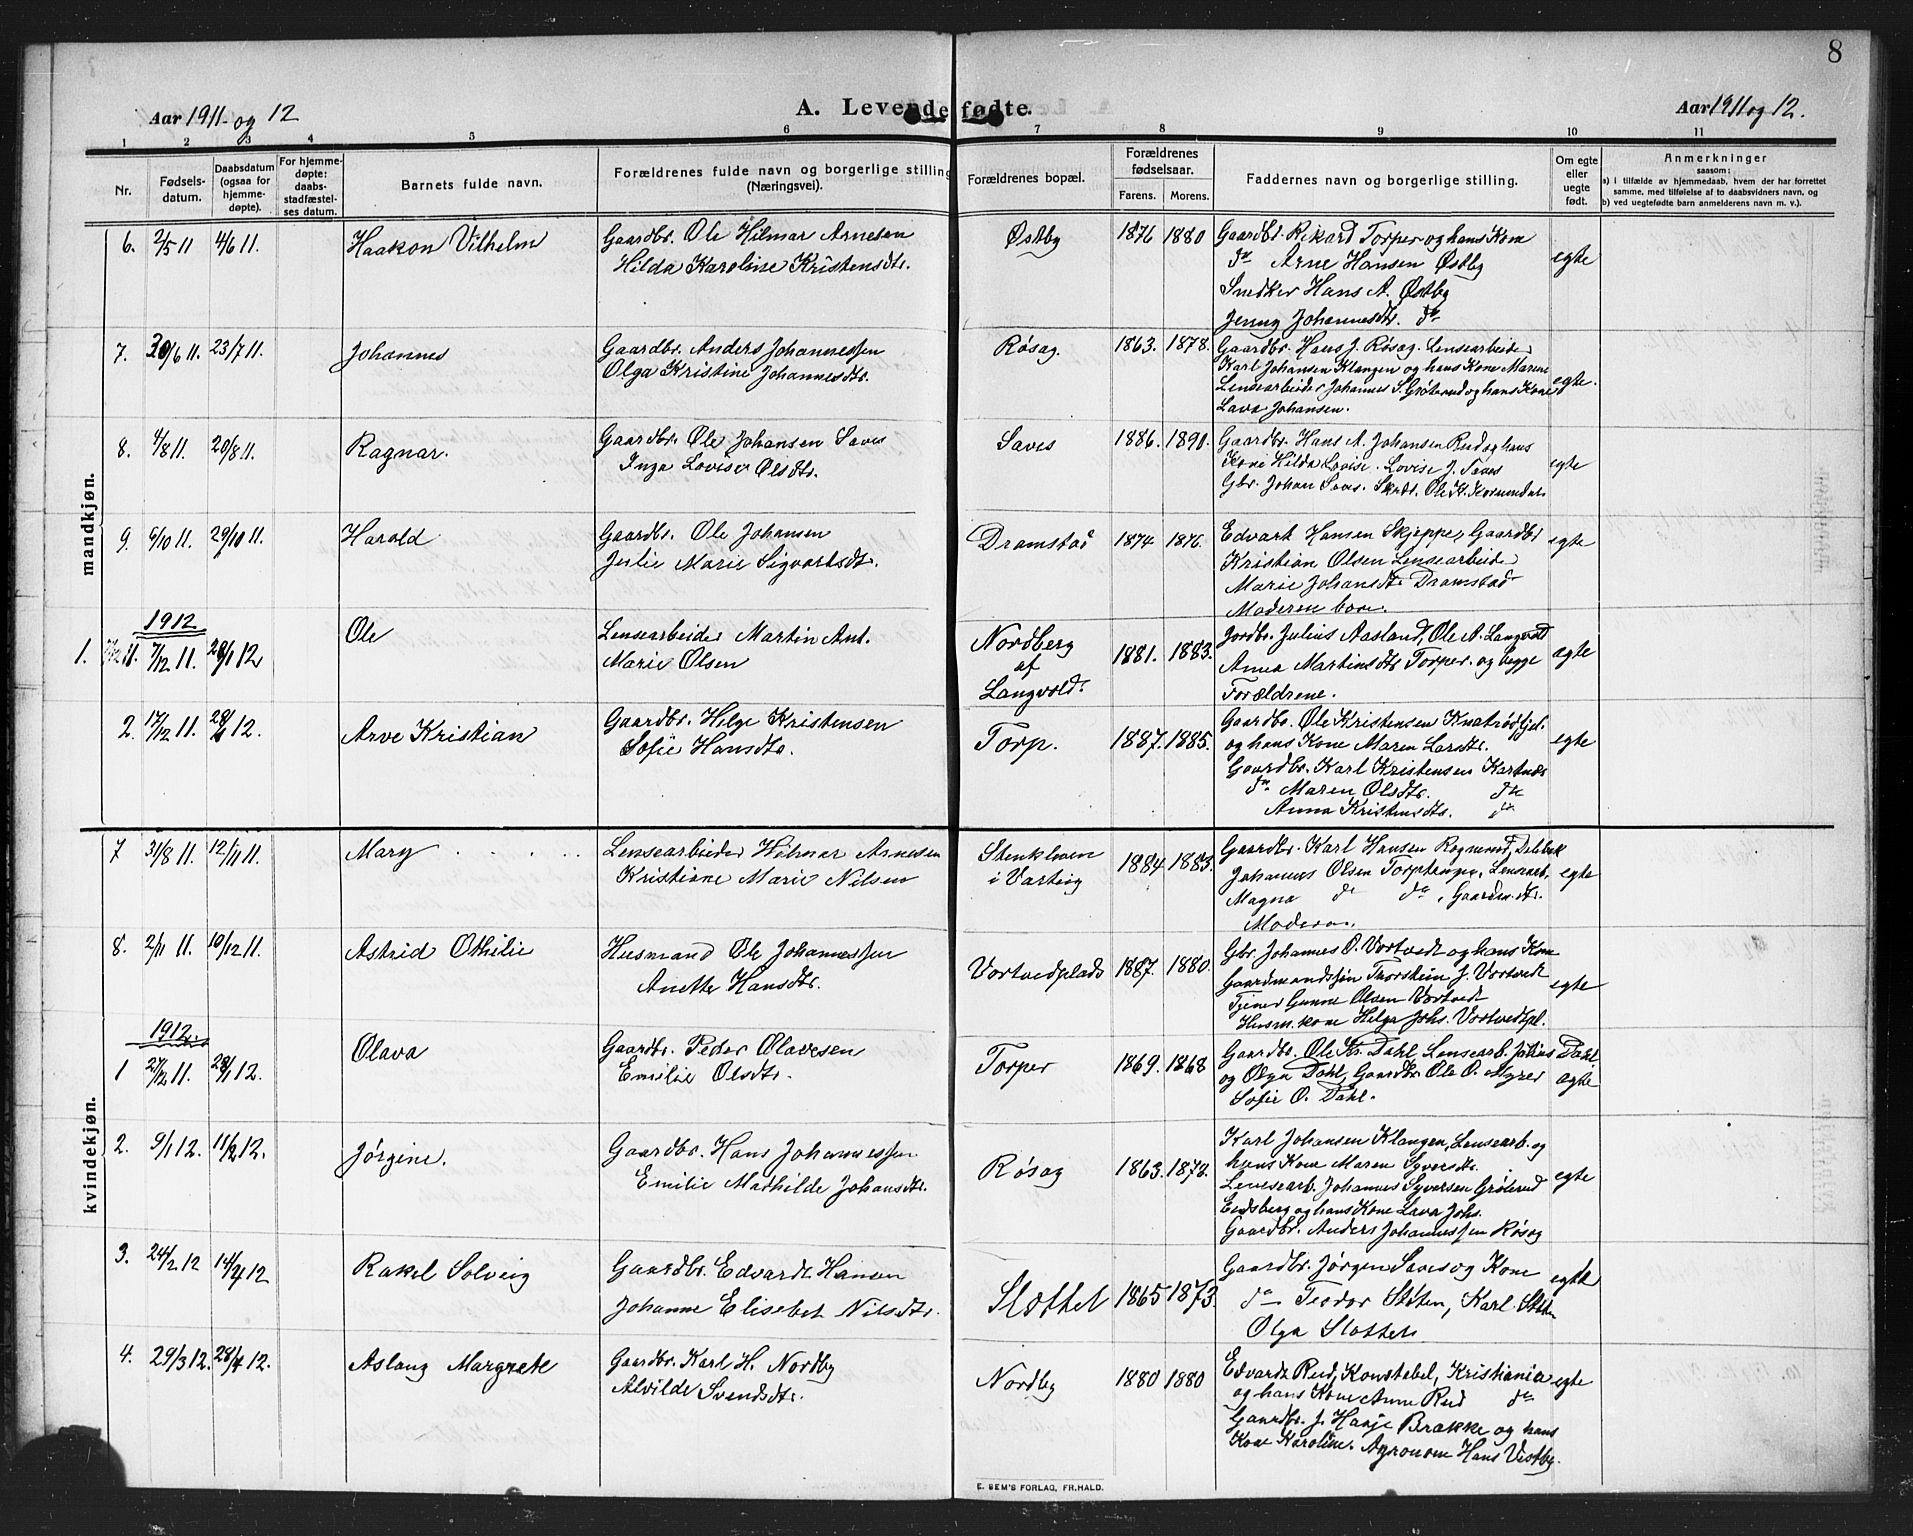 8
Aar 1911 og 12
A. Levende fødte.
Aar 1911 og 12.
1 2 3 4 5 6 7 8 9 10 11
Nr.
Fødsels-
datum.
Daabsdatum
(ogsaa for
hjemme-
døpte).
For hjemme-
døpte:
daabs-
stadfæstel-
ses datum.
Barnets fulde navn.
Forældrenes fulde navn og borgerlige stilling
(Næringsvei).
Forældrenes bopæl.
Forældrenes
fødselsaar.
Farens. Morens.
Faddernes navn og borgerlige stilling.
Om egte
eller
uegte
født.
Anmerkninger
saasom:
a) i tilfælde av hjemmedaab, hvem der har forrettet
samme, med tilføielse af to daabsvidners navn, og
b) ved uegtefødte barn anmelderens navn m. v.).
mandkjøn.
6. 2/5 11 4/6 11. Haakon Vilhelm
Gaardbr. Ole Hilmar Arnesen
Hilda Karoline Kristensdtr.
Østby 1876 1880
Gaardbr. Rikard Torper og hans Kone
do Arne Hansen Østby
Snedker Hans A. Østby
Jenny Johannesdtr. do
egte
7. 30/6 11. 23/7 11. Johannes
Gaardbr. Anders Johannessen
Olga Kristine Johannesdtr.
Røsag. 1863. 1878.
Gaardbr. Hans J. Røsag. Lensearbeider
Karl Johansen Klangen og hans Kone Maren
Lensearbeider Johannes S. Grøterud og hans Kone
Lava Johansen.
egte.
8. 4/8 11. 20/8 11. Ragnar.
Gaardbr. Ole Johansen Saves
Inga Lovise Olsdtr.
Saves 1886. 1890.
Gaardbr. Hans A. Johansen Rud og hans
Kone Hilda Lovise. Lovise J. Saves
Gbr. Johan Saves. Ole K.
egte
9. 6/10 11. 29/10 11. Harald
Gaardbr. Ole Johansen
Julie Marie Sigvartsdtr.
Dramstad 1874 1876.
Edvart Hansen Skjeppe, Gaardbr
Kristian Olsen Lensearbeider
Marie Johansdtr Dramstad
Moderen bar.
egte
1912
1. 7/12 11. 7/12 11. 28/1 12 Ole
Lensearbeider Martin Ant.
Marie Olsen
Nordberg
af
Langvold.
1881. 1883.
Jordbr. Julius Aasland, Ole A. Langvold
Anna Martinsdtr Torper. og begge
Forældrene.
ægte
2. 17/12 11. 12. Arve Kristian
Gaardbr. Helge Kristensen
Sofie Hansdtr.
Torp. 1887. 1885.
Gaardbr. Ole Kristensen
og hans Kone Maren Larsdtr.
Gaardbr. Karl Kristensen Kartnæs
do Maren Olsdtr. do
Anna Kristensdtr. do
egte
kvindekjøn.
7 31/8 11. 12/11 11. Mary
Lensearbeider Hilmar Arnesen
Kristiane Marie Nilsen
Stenkloven
i Varteig
1884 1883.
Gaardbr. Karl Hansen
Johannes Olsen Lensearb.
Magna do do,
Moderen.
egte
8. 2/11 11. 10/12 11. Astrid Othilie
Husmand Ole Johannessen
Anette Hansdtr.
Vortvedplads 1887. 1880.
Gbr. Johannes O. Vortvedt og hans Kone
Gaardmandssøn Thorstein J. Vortvedt
Tjener Gunne Olsen Vortvedt
Husm. kone Helga Johs. Vortvedtpl.
egte
1912.
1 27/12 11. 28/1 12. Olava
Gaardbr. Peder Olavesen
Emilie Olsdtr.
Torper 1869. 1868
Gaardbr. Ole Kr. Dahl, Lensearb. Julius Dahl
og Olga Dahl, Gaardbr Ole O. Myrer
Sofie O. Dahl.
ægte
2. 9/1 12. 11/2 12. Jørgine.
Gaardbr. Hans Johannessen
Emilie Mathilde Johansdtr.
Røsag 1863. 1878.
Karl Johansen Klangen, Lensearb. og
hans Kone Maren Syversdtr.
Lensearb. Johannes Syversen Grøterud
Eidsberg og hans Kone Lava Johs.
Gaardbr. Anders Johannessen Røsag
egte
3. 24/2 12 14/4 12 Rakel Solveig
Gaardbr. Edvardt Hansen
Johanne Elisebet Nilsdtr.
Slottet 1865 1873.
Gaardbr. Jørgen Saves og Kone
do Teodor Sloten, Karl
Olga Slottet
egte
4. 29/3 12. 28/4 12. Aslaug Margrete
Gaardbr. Karl H. Nordby
Alvilde Svendsdtr.
Nordby 1880 1880
Edvardt Rud, Konstabel, Kristiania
og hans Kone Anne Rud do
Gaardbr. J. Haaje Brække og hans
Kone Karoline. Agronom Hans Vestby.
egte
E. SEM'S FORLAG, FR.HALD.